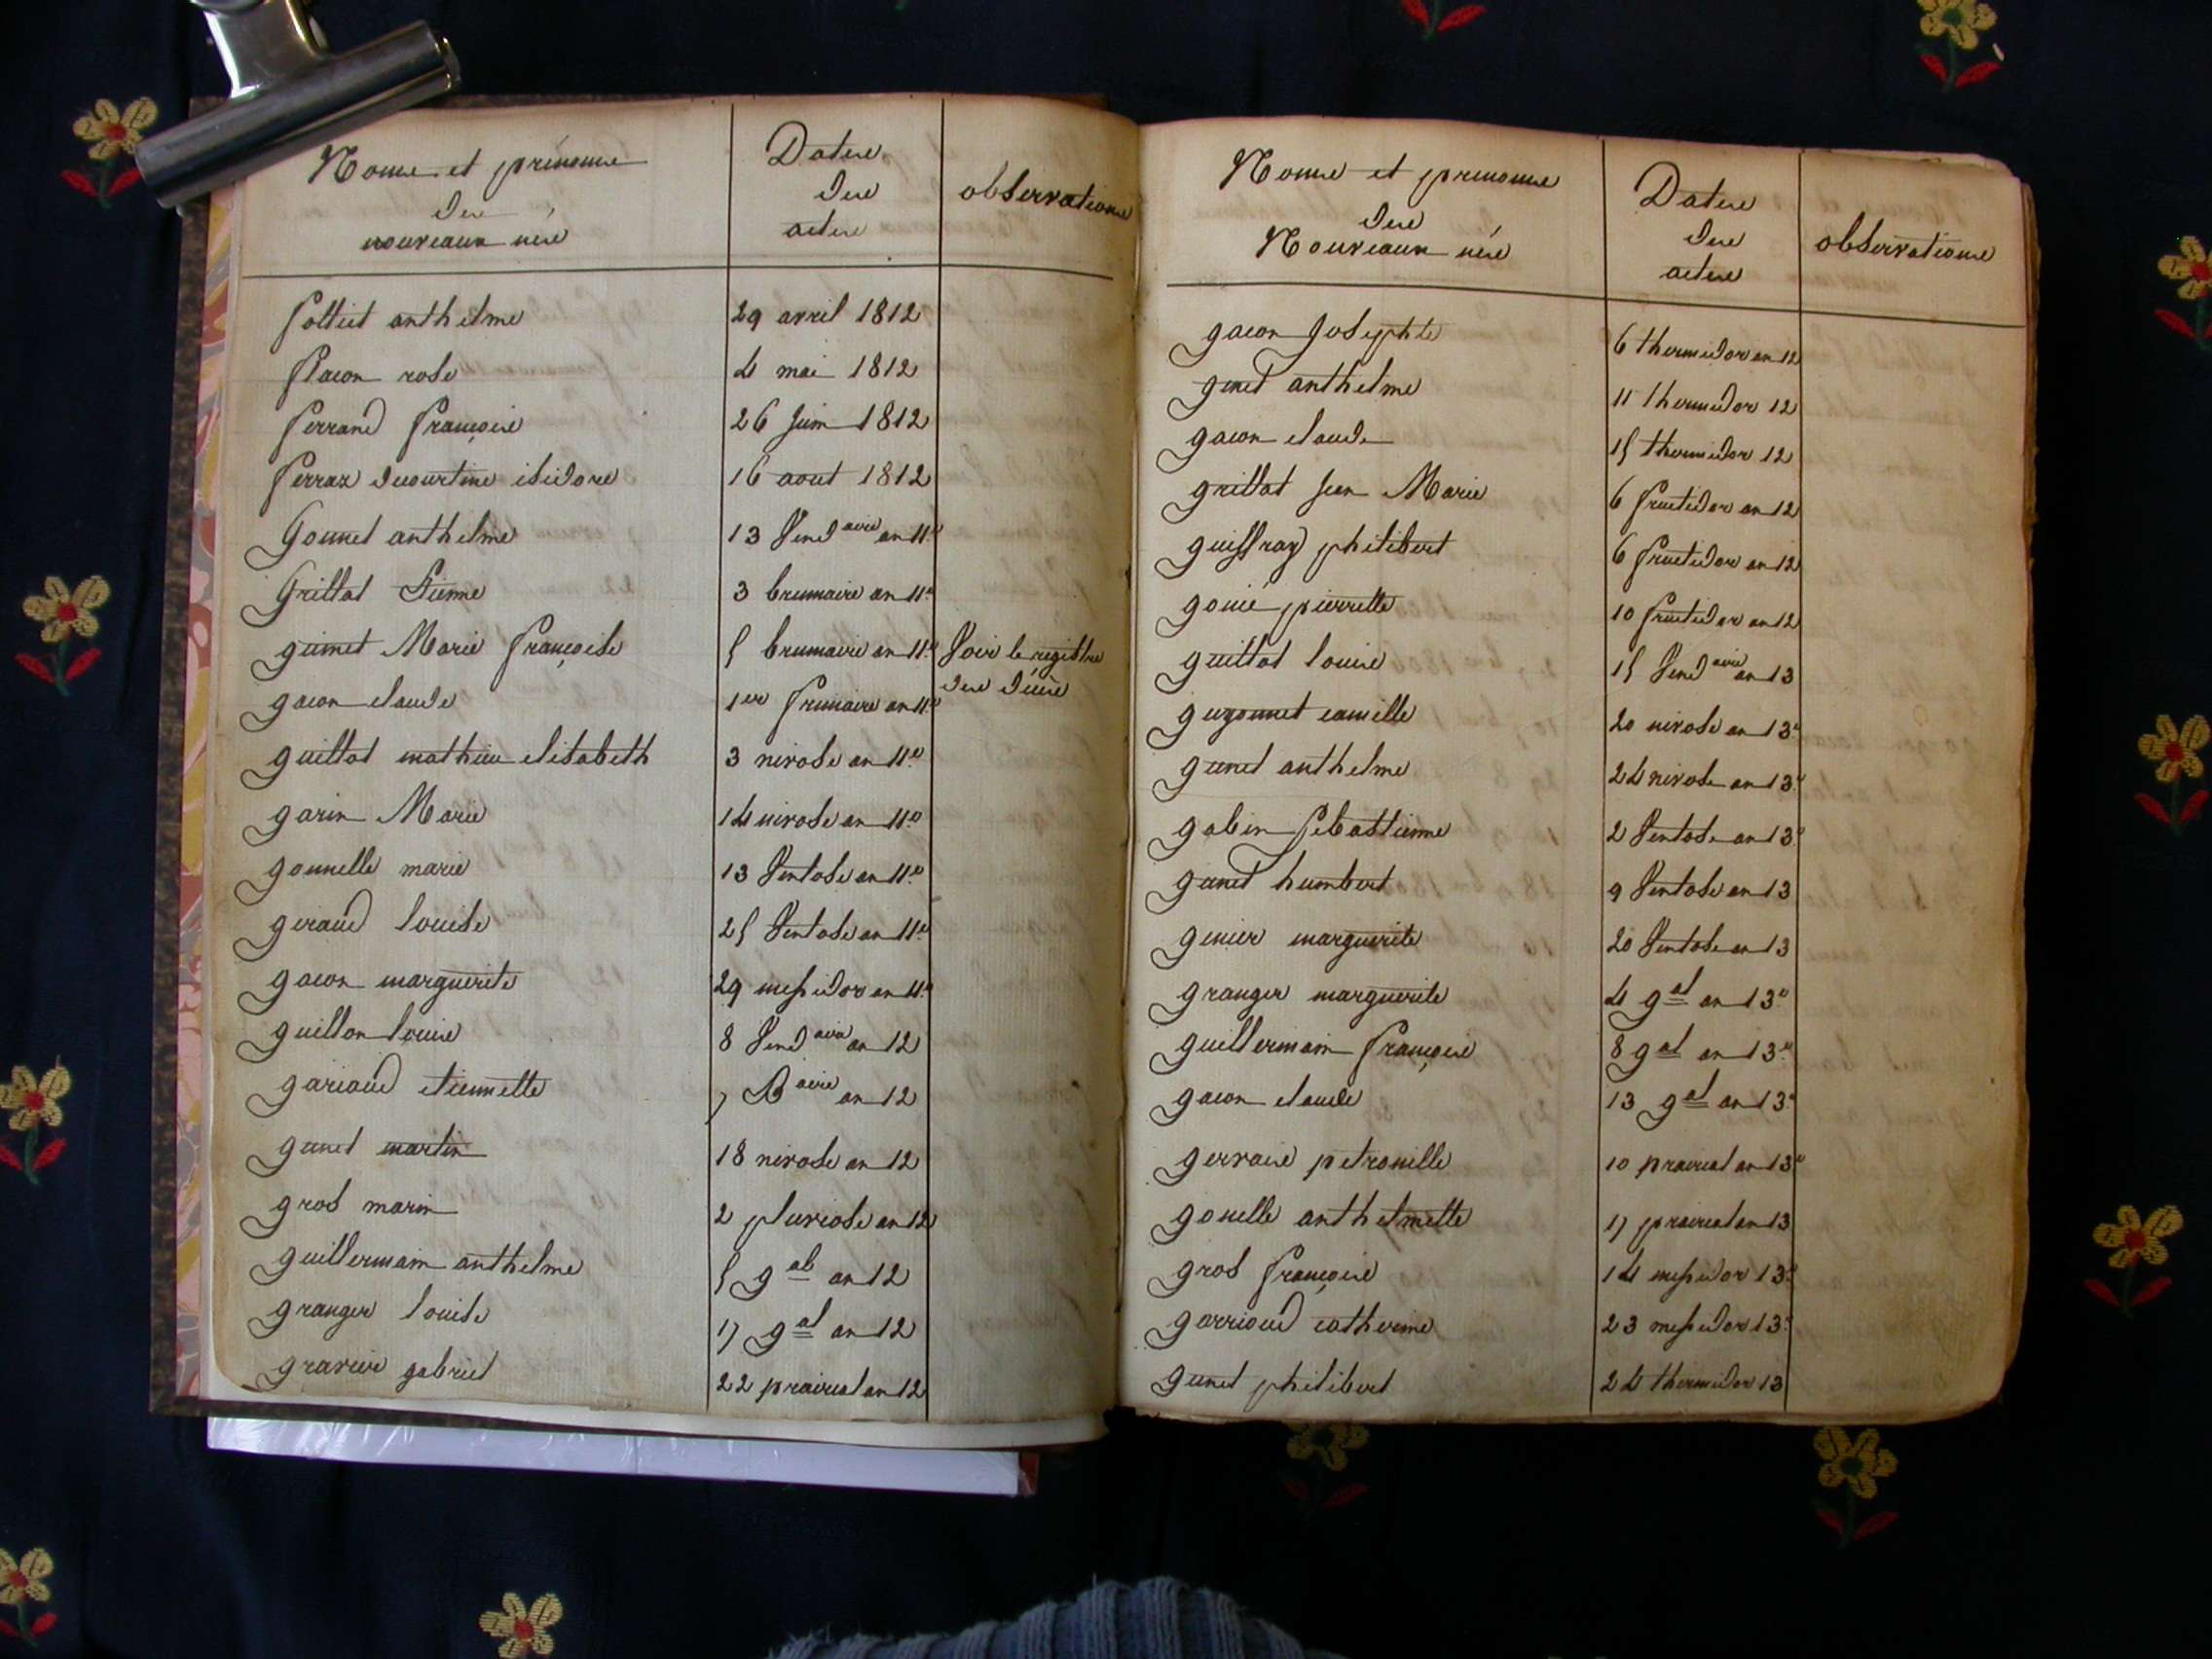 Noms et prénoms
des
nouveaux nés
Dates
des
actes
observations
folliet anthelme 29 avril 1812
flacon rose 4 mai 1812
ferrand françois 26 juin 1812
ferraz ducourtine isidore 16 aout 1812
Gonnet anthelme 13 Vend aire an 11e
Grillat Etienne 3 brumaire an 11e
guinet Marie françoise 5 brumaire an 11e Voir le registre
des décès
gacon claude 1er frimaire an 11e
guillot mathieu elisabeth 3 nivose an 11e
garin Marie 14 nivose an 11e
gonnelle marie 13 Ventose an 11e
geraud louise 25 Ventose an 11e
gacon marguerite 29 messidor an 11e
guillon louise 8 Vend aire an 12
gariaud etiennette 7 B aire an 12
gunet martin 18 nivose an 12
gros marin 2 pluviose an 12
guillermain anthelme 5 g al an 12
granger louise 17 g al an 12
gravier gabriel 22 prairial an 12
Noms et prenoms
des
Nouveaux nés
Dates
des
actes
observations
gacon Josephte 6 thermidor an 12
ginet anthelme 11 thermidor 12
gacon claude 15 thermidor 12
grillat jean Marie 6 fructidor an 12
guiffray philibert 6 fructidor an 12
gouié pierrette 10 fructidor an 12
guillot louise 15 Vend aire an 13
guyonnet camille 20 nivose an 13e
gunet anthelme 24 nivose an 13e
gabin sebastienne 2 Ventose an 13e
gunet humbert 9 Ventose an 13
ginier marguerite 20 Ventose an 13
granger marguerite 4 g al an 13e
guillermain françoise 8 g al an 13e
gacon claude 13 g al an 13e
gervais petronille 10 prairial an 13e
gonelle anthelmette 17 prairial an 13
gros françoise 14 messidor 13e
garrioud catherine 23 messidor 13e
gunet philibert 24 thermidor 13